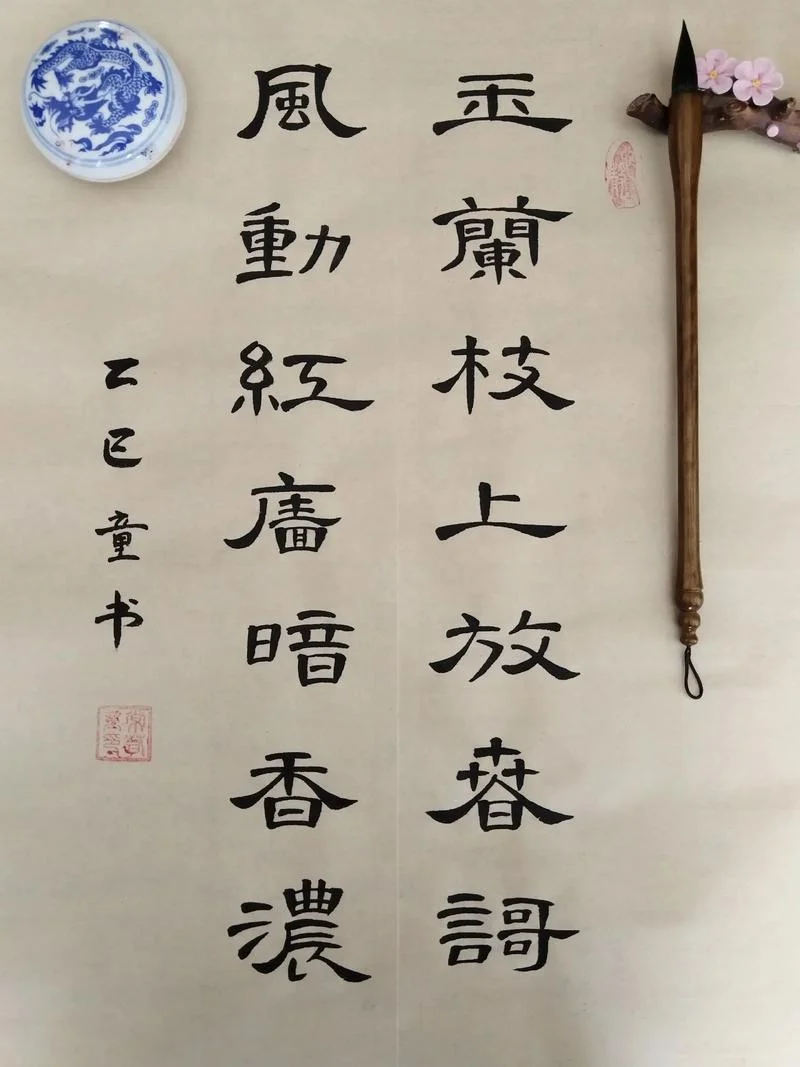 玉蘭枝上放春謌
風動紅廧暗香濃
乙巳童书